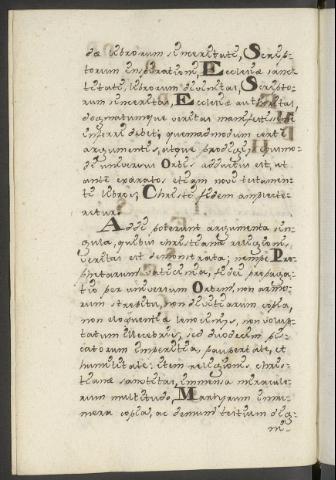 dæ librorum sinceritate, Scrip-
torum inspiratione, Ecclesiæ sanc-
titate, librorum divinitas, Scripto-
rum sinceritas, Ecclesiæ authoritas,
dogmatumque veritas manifeste
inferri debet; quemadmodum certo
argumento, utque prodigio, quomo-
do universus Orbis adductus est, ut
ante exaratos etiam novi testamen-
ti libros, Christo fidem amplecte-
retur.
Addi poterunt argumenta sin-
gula, quibus christianæ religionis
veritas est demonstrata; nempe Pro-
phetarum vaticinia, fidei propaga-
tio per universum Orbem, non armo-
rum strepitu, non divitiarum copia,
non eloquentiæ lenociniis, non volup-
tatum illecebris, sed duodecim pis-
catorum imperitia, paupertate, et
humilitate: item religionis chris-
tianæ sanctitas, immensa miraculo-
rum multitudo, Martyrum innu-
mera copia, ac demum tritium dia-
m